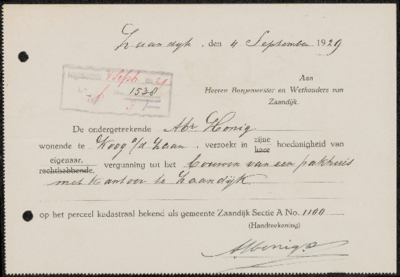 Zaandyk, den 4 September 1929
1530
Aan
Heeren Burgemeester en Wethouders van
Zaandijk.
De ondergeteekende Abr Honig
wonende te Koog a/d Zaan, verzoekt in zijne hoedanigheid van
haar
eigenaar,
rechthebbende, vergunning tot het bouwen van een pakhuis
met kantoor te Zaandijk
op het perceel kadastraal bekend als gemeente Zaandijk Sectie A No. 1100
(Handteekening)
A Honig